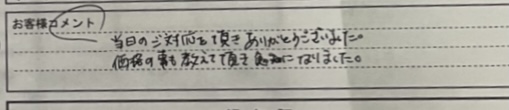 お客様コメント
当日のご対応を頂きありがとうございました。
価格の事も教えて頂き勉強になりました。